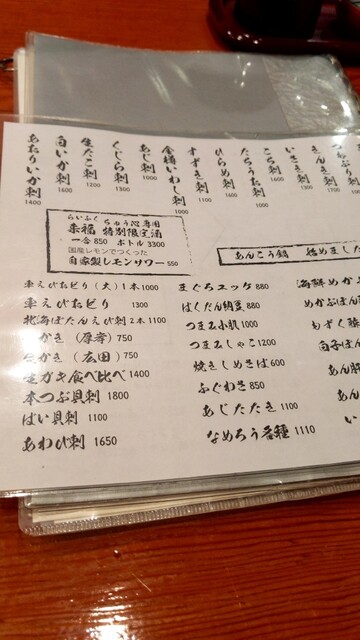 つぶ刺
きんき刺 1700
いさき刺 1300
こち刺 1600
たちうお刺 1000
ひらめ刺 1600
すずき刺 1100
金樽いわし刺 1000
あじ刺 1000
くじら刺 1300
生たこ刺 1200
白いか刺 1600
あおりいか刺 1400
らいふく ちゅう心専用
来福 特別限定酒
一合 850 ボトル 3300
国産レモンでつくった
自家製レモンサワー 550
あんこう鍋 始めました
車えびおどり(大)1本 1000
車えびおどり 1300
北海ぼたんえび刺 2本 1100
かき(厚岸)750
生かき(広田)750
生ガキ食べ比べ 1400
本つぶ貝刺 1800
ばい貝刺 1100
あわび刺 1650
まぐろユッケ 880
ばくだん納豆 880
つまみ小肌 1000
つまみしゃこ 1200
焼きしめさば 600
ふぐわさ 850
あじたたき 1100
なめろう各種 1110
海鮮めか
めかぶ
もずく
白子ぽん
あん肝
あん
い